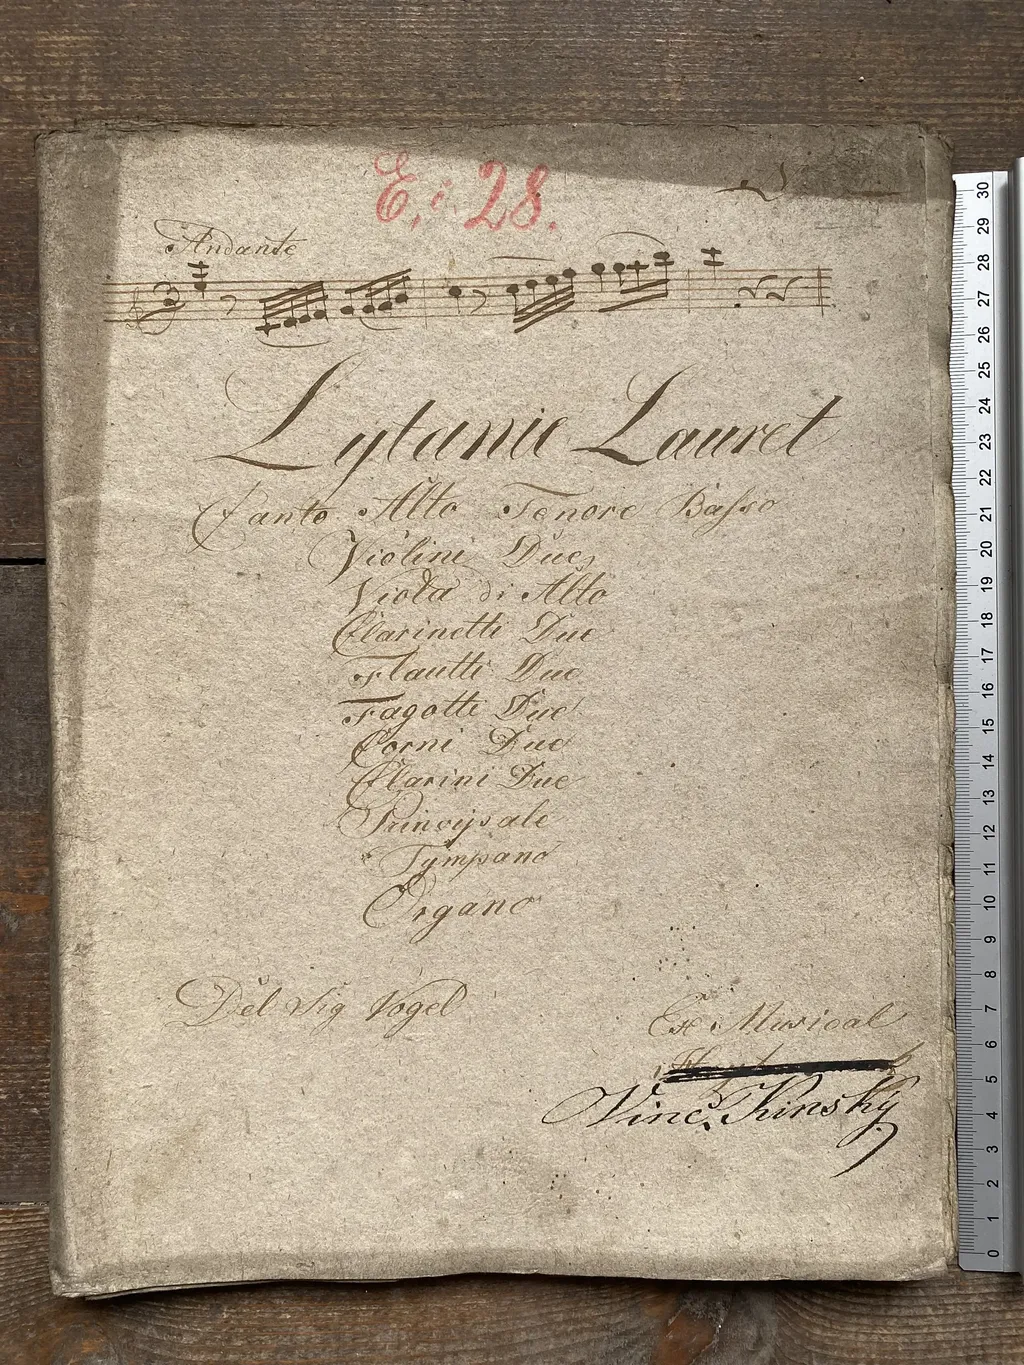 E. i. 28.
Andante
Lytanie Lauret
Canto Alto Tenore Basso
Violini Due
Viola di Alto
Clarinetti Due
Flautti Due
Fagotti Due
Corni Due
Clarini Due
Principale
Tympano
Organo
Del Sig Vogel
Ex Musical
Vinc. Kinsky
30
29
28
27
26
25
24
23
22
21
20
19
18
17
16
15
14
13
12
11
10
9
8
7
6
5
4
3
2
1
0